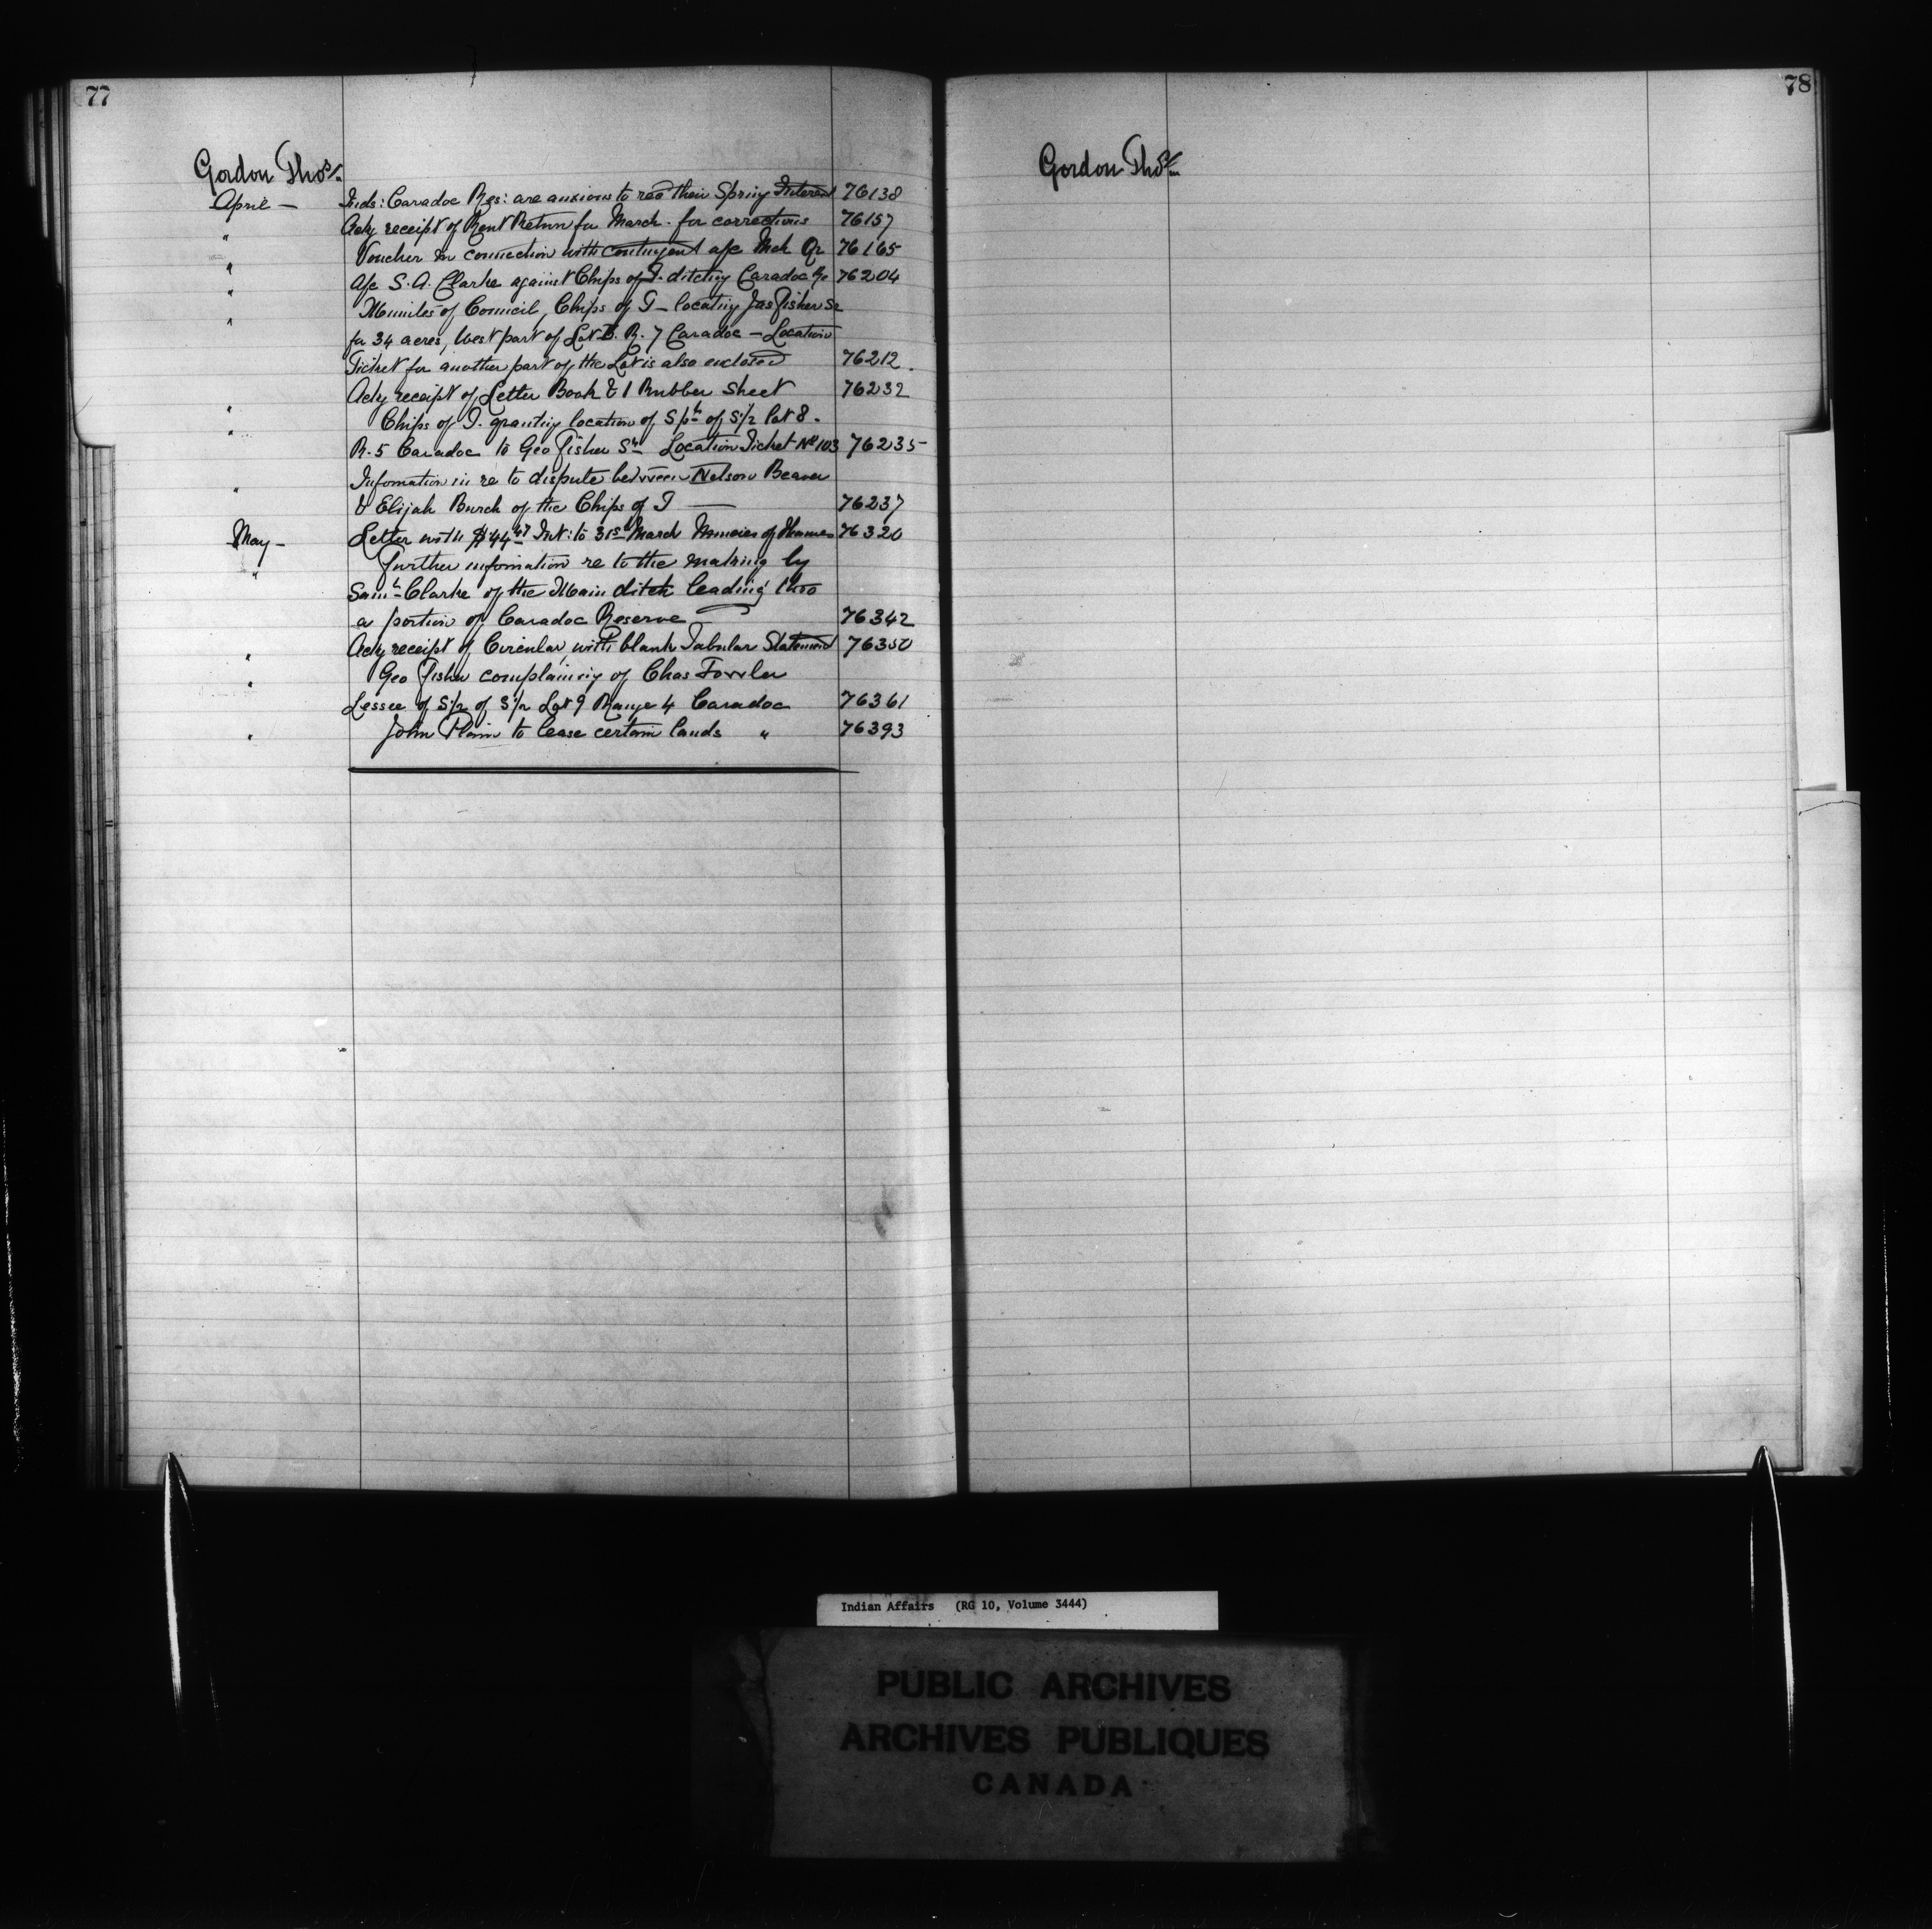 77
Gordon Thos
April — Inds: Caradoc Res: are anxious to rec their Spring Interest 76138
" Ackg receipt of Rent Return for March - for corrections 76157
" Voucher in connection with contingent a/c Mch Qr 76165
" a/c S. A. Clarke against Chips of T. ditching Caradoc Re 76204
" Minutes of Council, Chips of T — locating Jas Fisher Sr
for 34 acres, West part of Lot B. R. 7 Caradoc — Location
Ticket for another part of the Lot is also enclosed 76212
" Ackg receipt of Letter Book & 1 Rubber Sheet 76232
" Chips of T. granting location of S pt of S½ Lot 8.
R. 5 Caradoc to Geo Fisher Sr Location Ticket No 103 76235
" Information in re to dispute between Nelson Beaver
& Elijah Burch of the Chips of T — 76237
May — Letter with $44.47 Int: to 31st March Muncies of Thames 76320
" Further information re to the making by
Saml Clarke of the Main ditch leading thro
a portion of Caradoc Reserve 76342
" Ackg receipt of Circular, with blank Tabular Statement 76350
" Geo Fisher complaining of Chas Fowler
Lessee of S½ of S½ Lot 9 Range 4 Caradoc 76361
" John Plain to lease certain lands " 76393
78
Gordon Thos
Indian Affairs (RG 10, Volume 3444)
PUBLIC ARCHIVES
ARCHIVES PUBLIQUES
CANADA